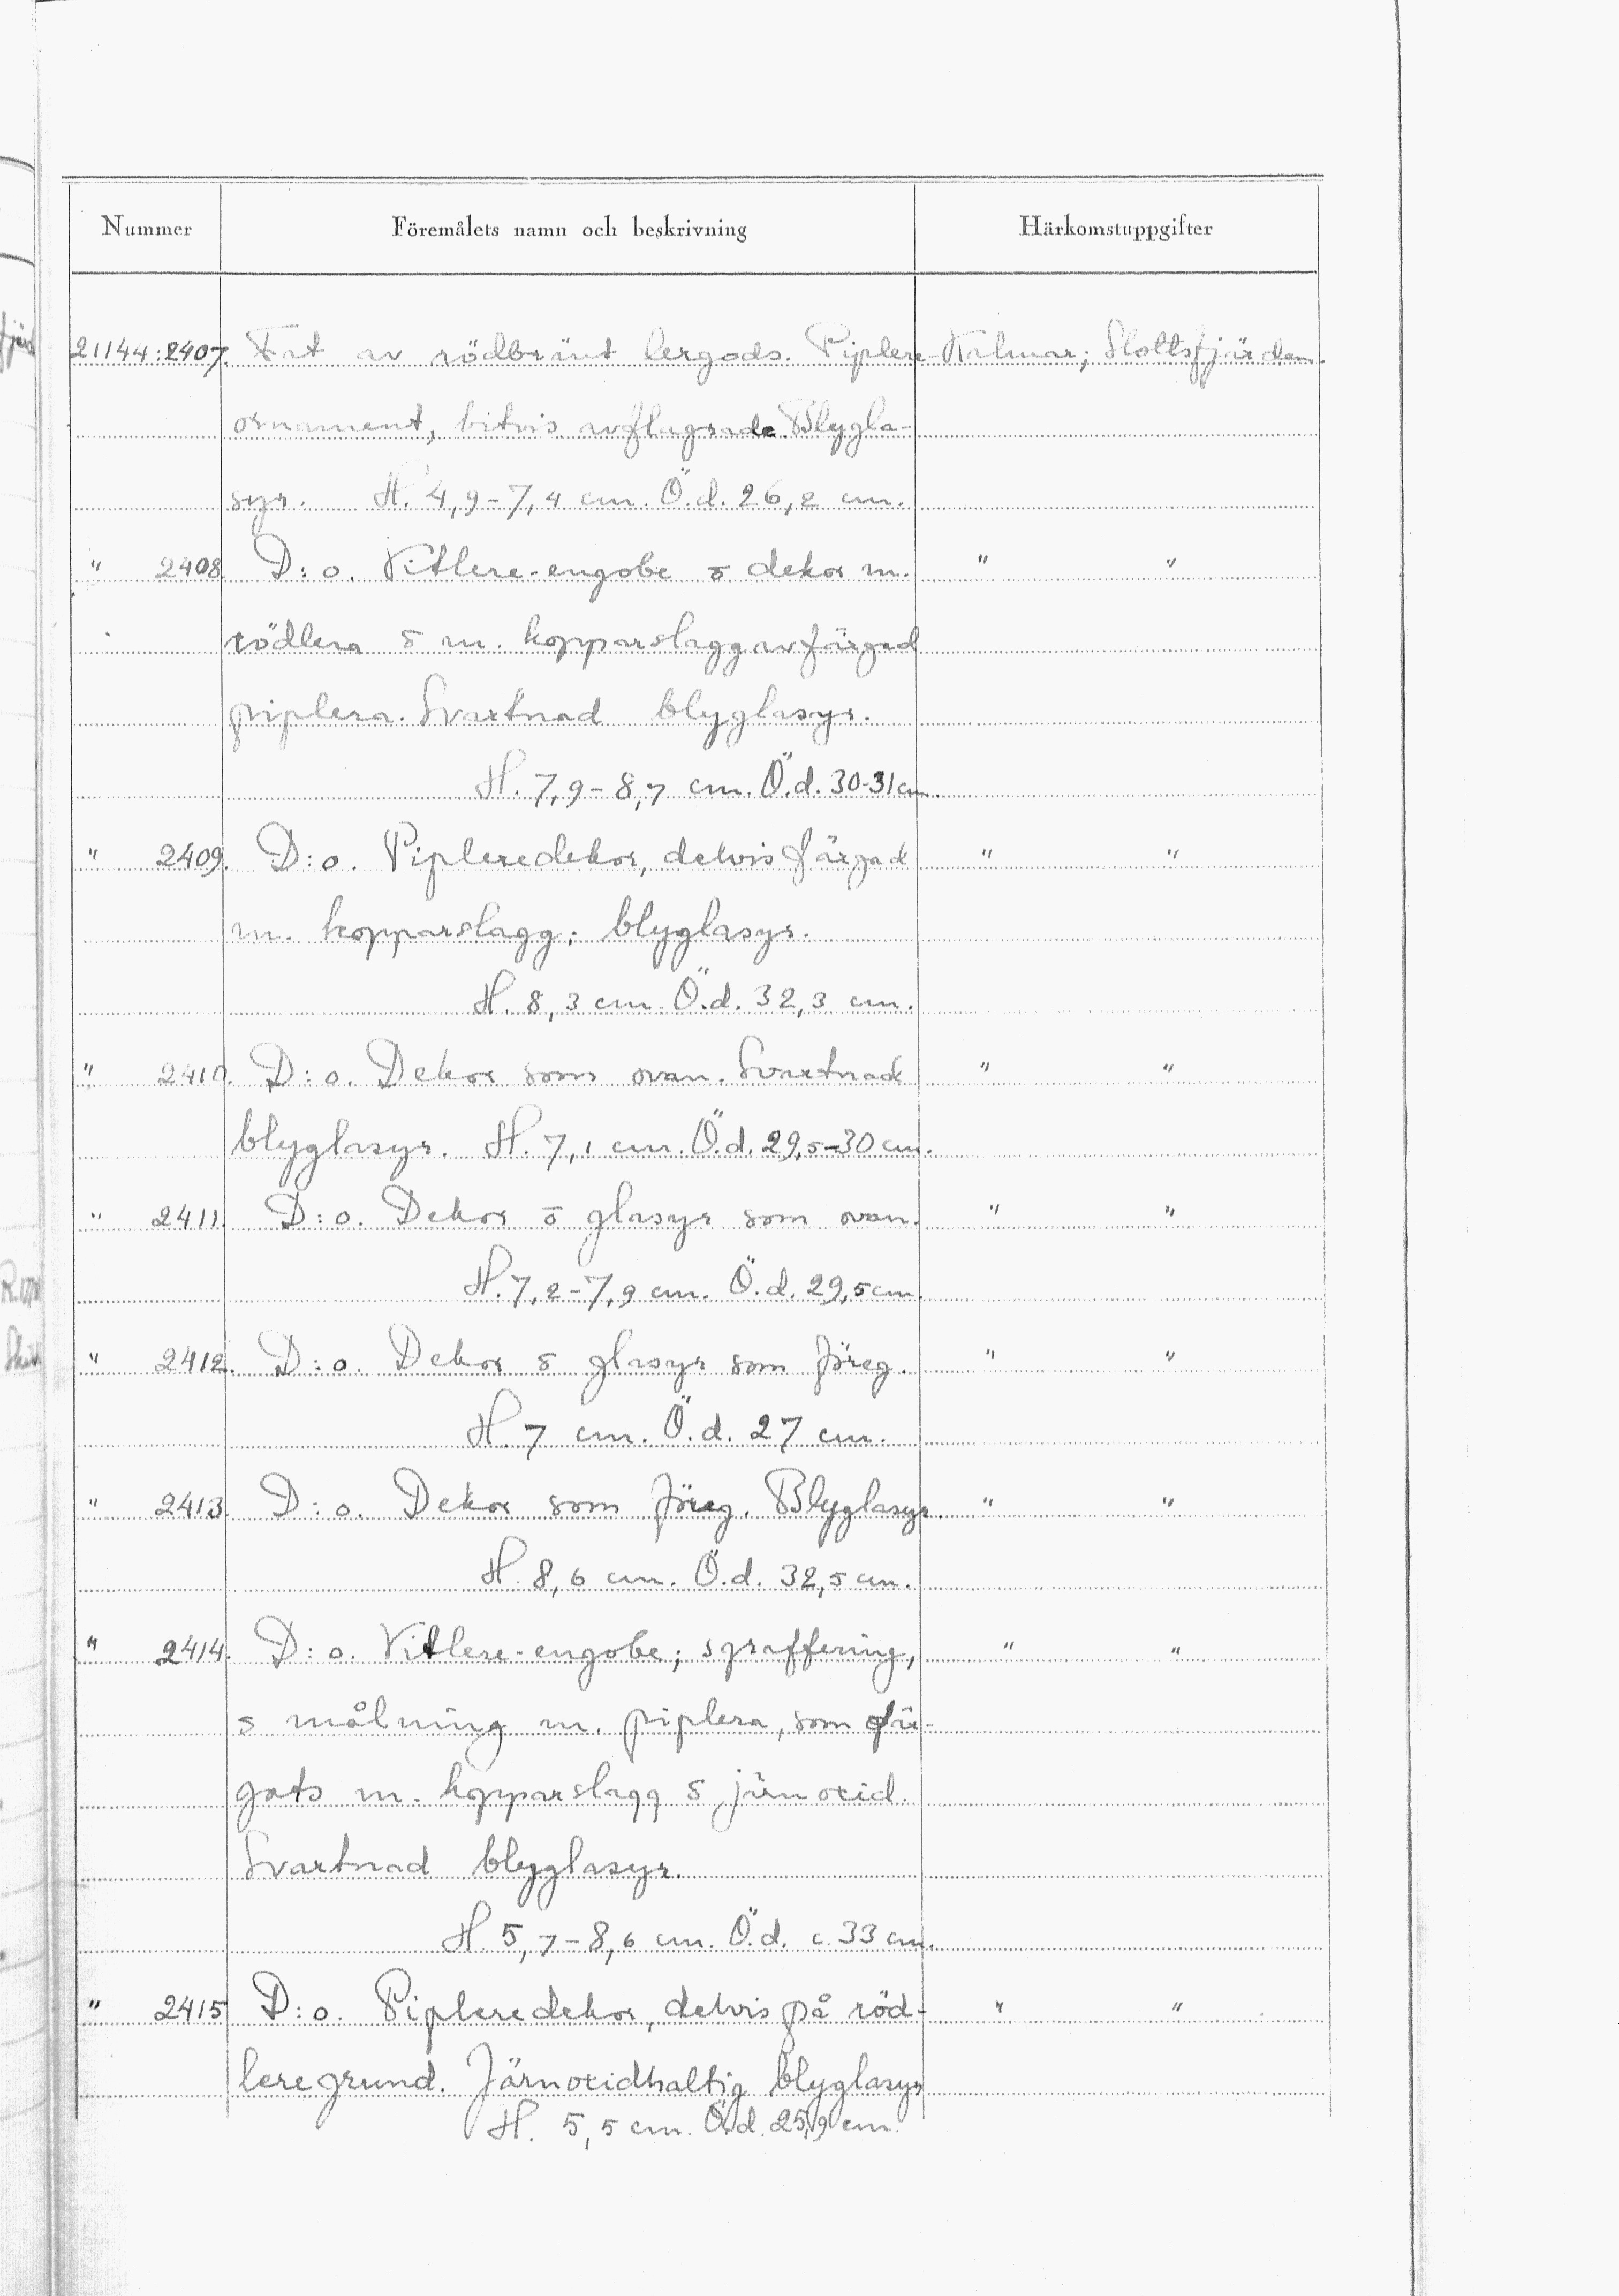 Nummer Föremålets namn och beskrivning Härkomstuppgifter
21144:2407. Fat av rödbränt lergods. Piplere- Kalmar; Slottsfjärden.
ornament, bitvis avflagrade. Blygla-
syr. H. 4,9-7,4 cm. Ö.d. 26,2 cm.
" 2408. D:o. Vitlere-engobe o dekor m. " "
rödlera o m. kopparslagg avfärgad
piplera. Svartnad blyglasyr.
H. 7,9-8,7 cm. Ö.d. 30-31 cm.
" 2409. D:o. Pipleredekor, delvis färgad " "
m. kopparslagg; blyglasyr.
H. 8,3 cm. Ö.d. 32,3 cm.
" 2410. D:o. Dekor som ovan. Svartnad " "
blyglasyr. H. 7,1 cm. Ö.d. 29,5-30 cm.
" 2411. D:o. Dekor o glasyr som ovan. " "
H. 7,2-7,9 cm. Ö.d. 29,5 cm.
" 2412. D:o. Dekor o glasyr som föreg. " "
H. 7 cm. Ö.d. 27 cm.
" 2413. D:o. Dekor som föreg. Blyglasyr. " "
H. 8,6 cm. Ö.d. 32,5 cm.
" 2414. D:o. Vitlere-engobe; sgraffering, " "
o målning m. piplera, som fär-
gats m. kopparslagg o järnoxid.
Svartnad blyglasyr.
H. 5,7-8,6 cm. Ö.d. c. 33 cm.
" 2415 D:o. Pipleredekor, delvis på röd- " "
leregrund. Järnoxidhaltig blyglasyr
H. 5,5 cm. Ö.d. 25,9 cm.